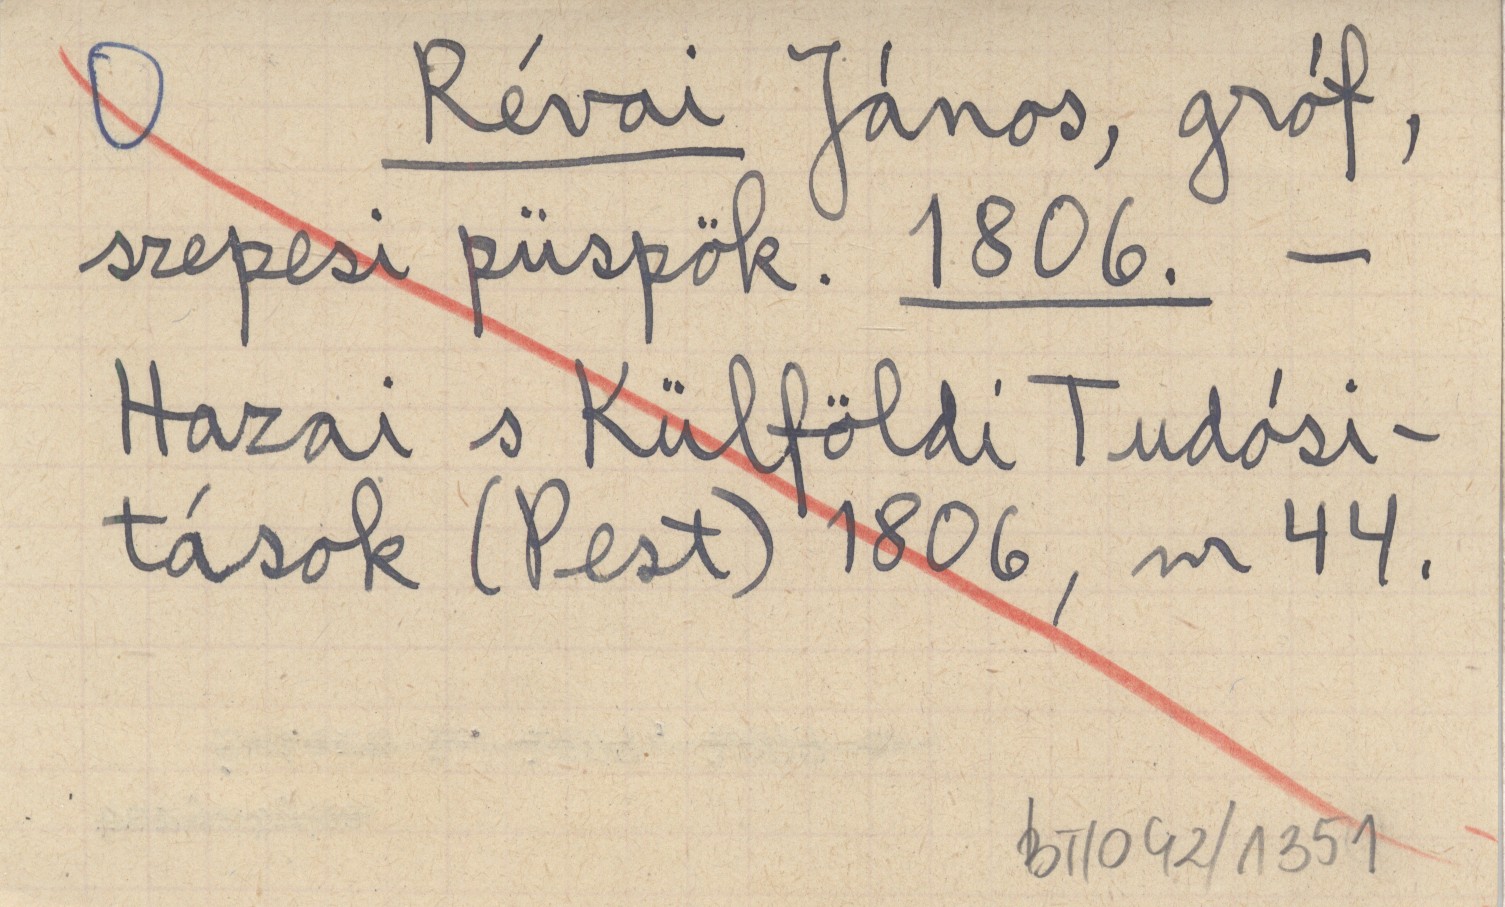 O Révai János, gróf,
szepesi püspök. 1806. —
Hazai s Külföldi Tudósi-
tások (Pest) 1806, nr 44.
BTI042/1351